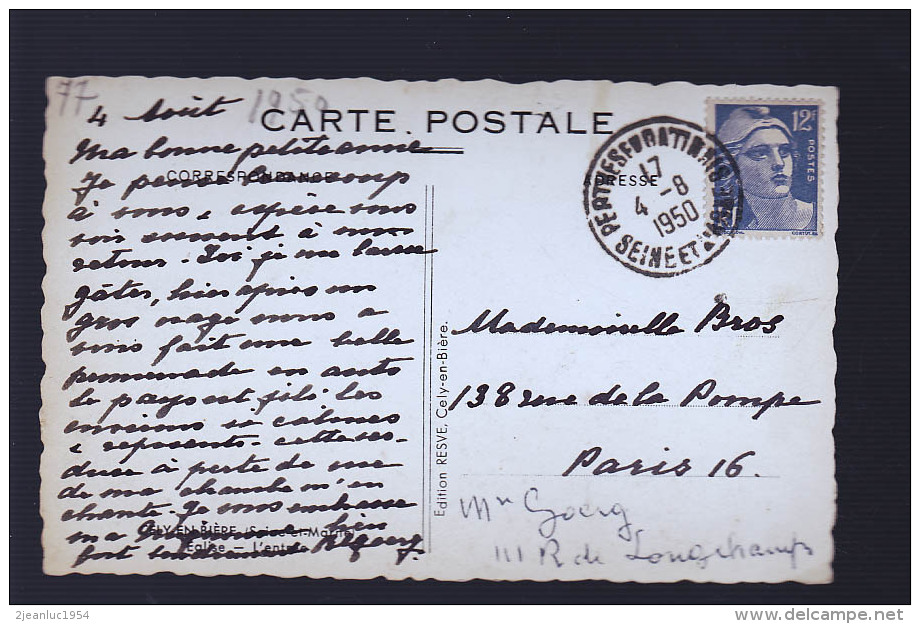 77
1950
CARTE POSTALE
CORRESPONDANCE
ADRESSE
4 Août
Ma bonne petite amie
Je pense beaucoup
à vous, espère vous
voir à mon
retour. Ici je me laisse
gâter, hier après un
gros orage nous a
fait une belle
promenade en auto
le pays est joli les
environs si calmes
à perte de vue
de ma chambre m'en
chante. Je vous embrasse
ma bien
fort
CELY-EN-BIÈRE (Seine-et-Marne)
Eglise — L'entrée
Edition RESVE, Cely-en-Bière.
17
4 -8
1950
SEINE ET MARNE
12F
POSTES
Mademoiselle Bros
138 rue de la Pompe
Paris 16.
Mme Goerg
111 R de Longchamp
2jeanluc1954
delcampe.net